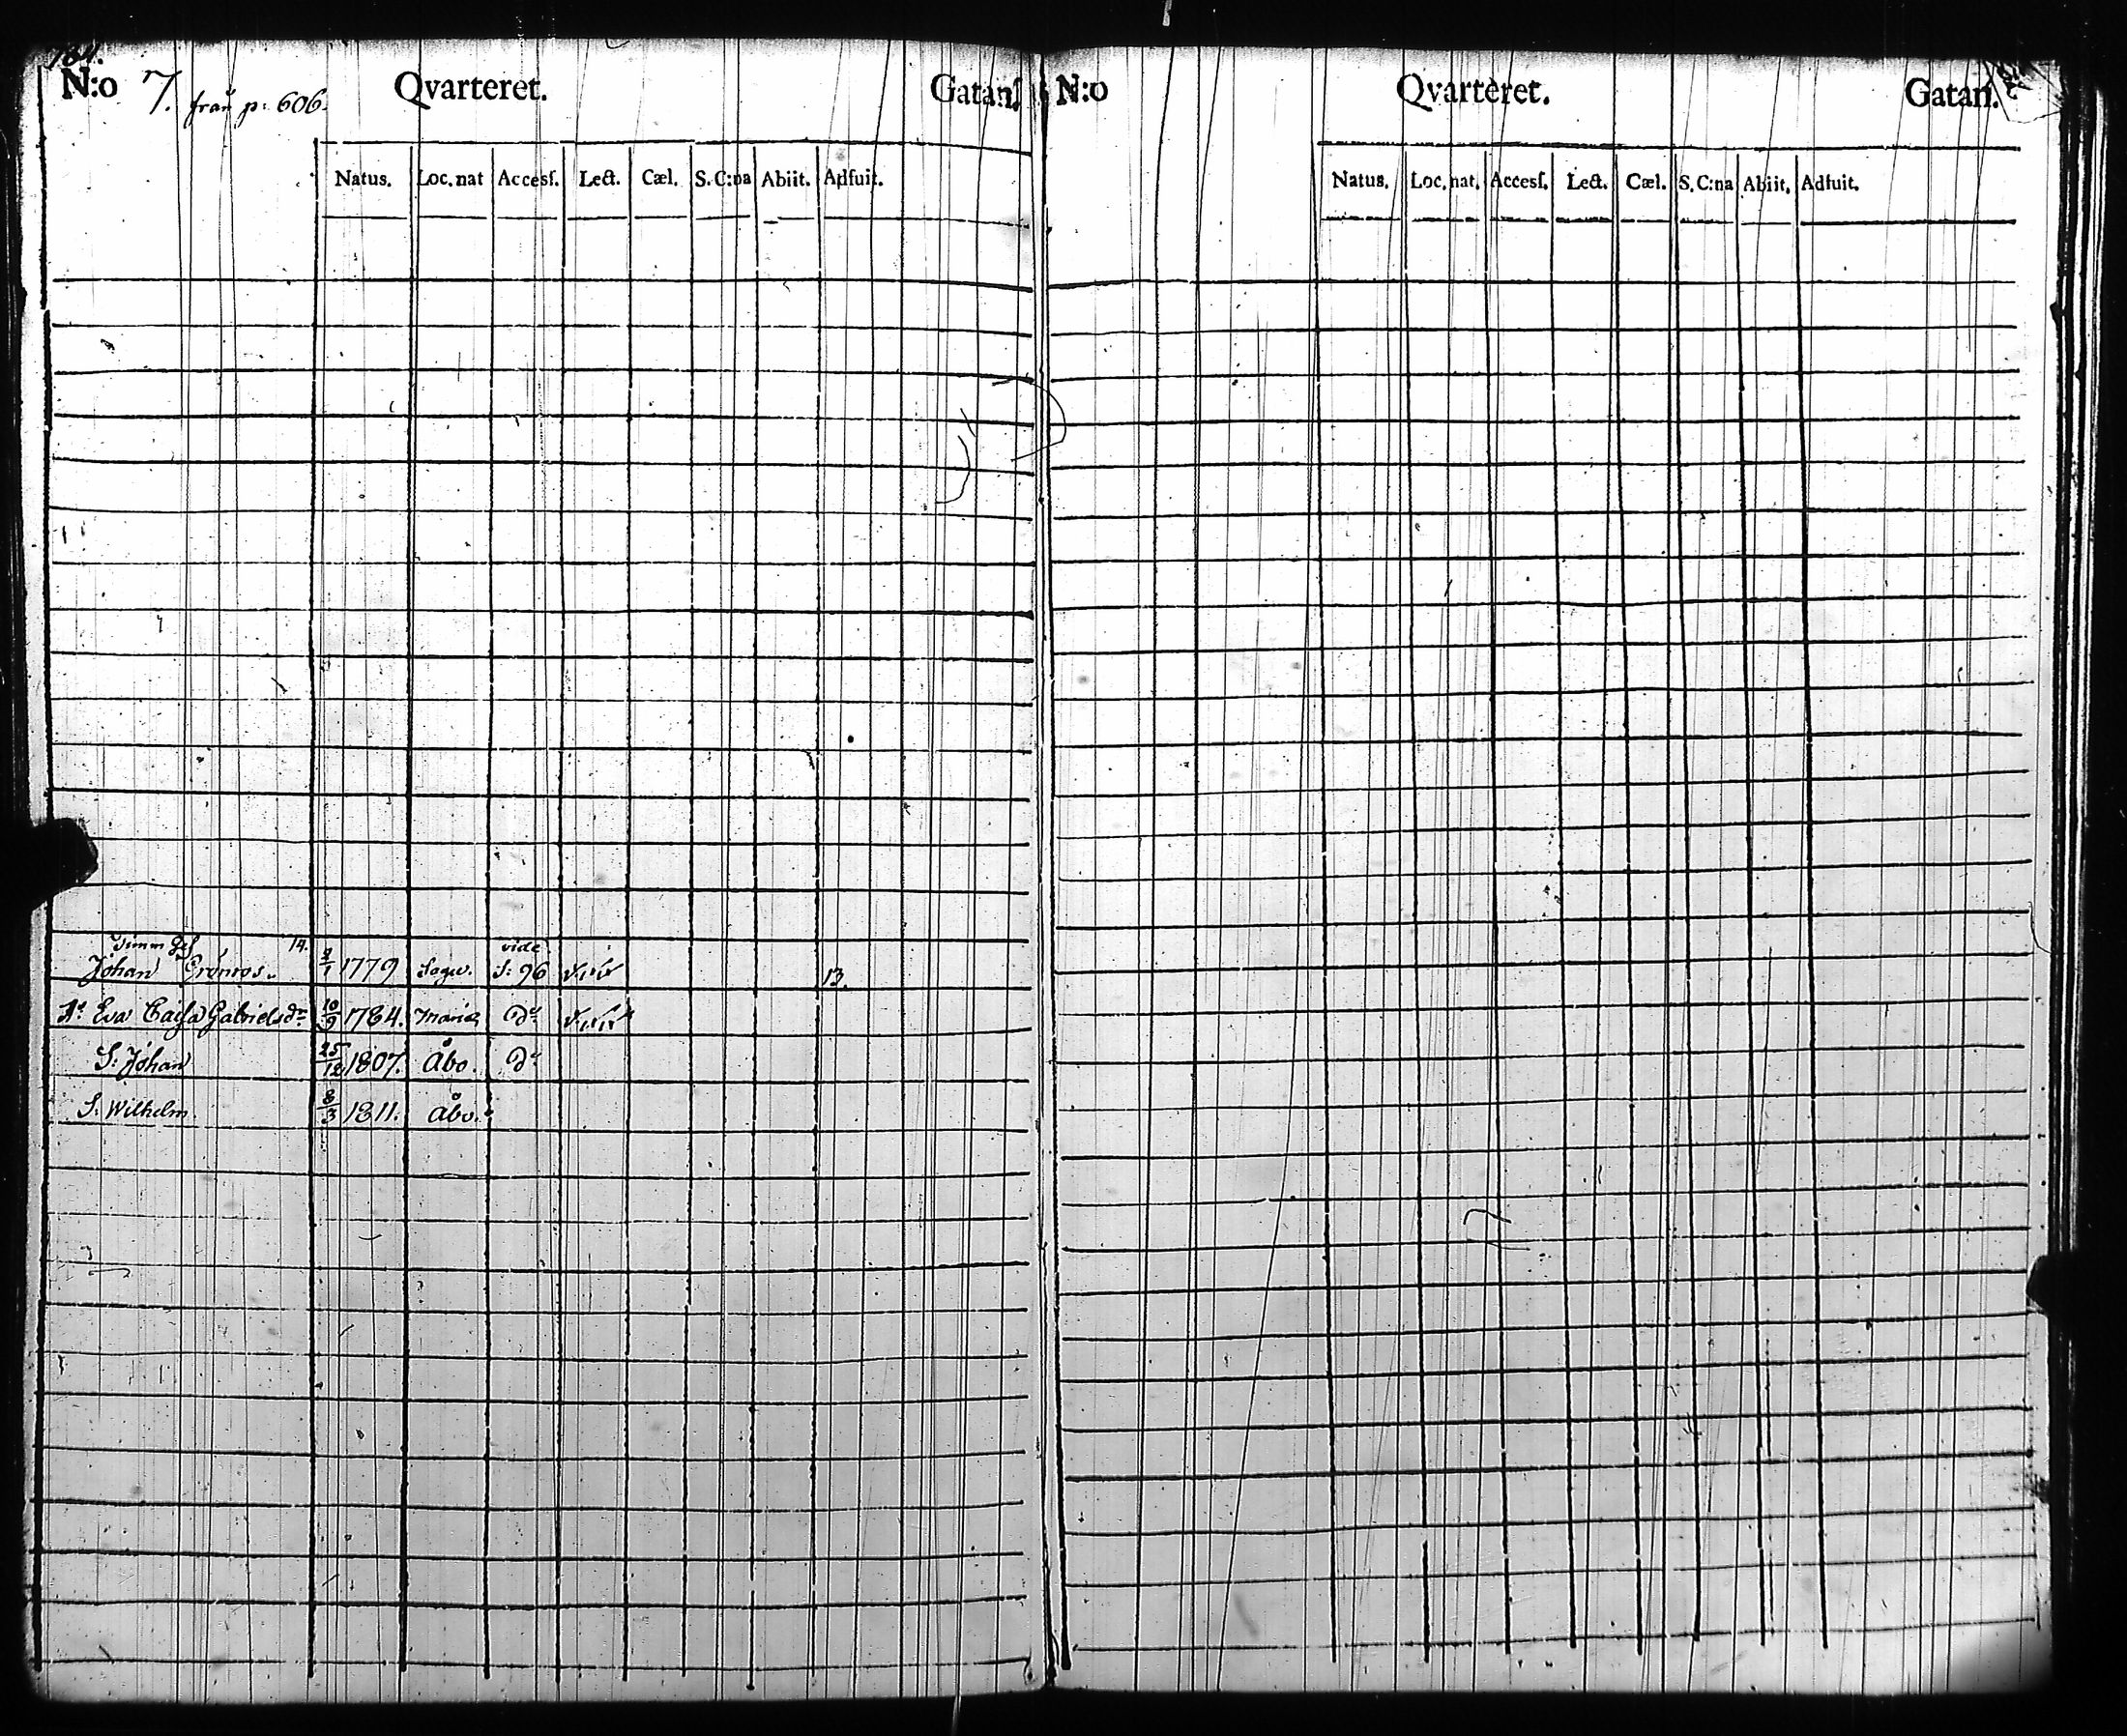 184.
N:o 7. från p: 606. Qvarteret. Gatan.
Natus. Loc. nat Accesſ. Lect. Cæl. S. C:na Abiit. Adfuit.
Timm Ges 14. vide
Johan Grönros. 2/1 1779 Sagu. S: 96 13.
H: Eva Caisa Gabrielsdr 10/9 1784. Mariæ Do
S: Johan 25/12 1807. Åbo. Do
S: Wilhelm. 8/3 1811. Åbo.
N:o Qvarteret. Gatan.
Natus. Loc. nat. Accesſ. Lect. Cæl. S. C:na Abiit. Adfuit.